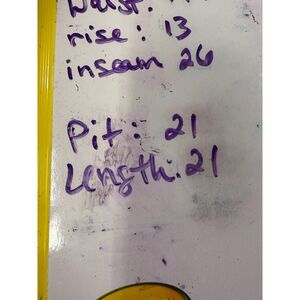 Waist:
rise: 13
inseam 26
Pit: 21
Length: 21